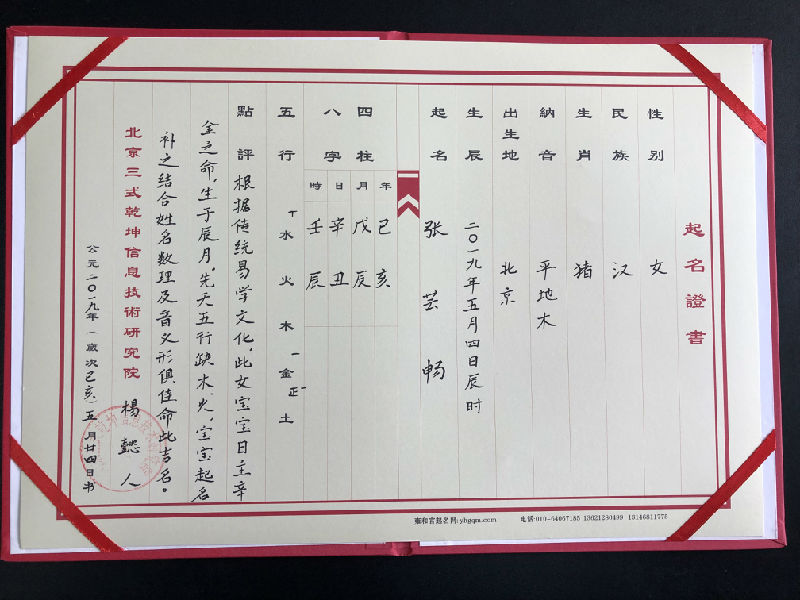 起名證書
性别 女
民族 汉
生肖 猪
納音 平地木
出生地 北京
生辰 二〇一九年五月四日辰时
起名 张芸畅
四柱八字
年 己亥
月 戊辰
日 辛丑
時 壬辰
五行 水火木金土
點評 根据传统易学文化,此女宝宝日主辛
金之命,生于辰月,先天五行缺木火,宝宝起名
补之结合姓名数理及音义形俱佳命此吉名。
北京三式乾坤信息技術研究院 楊懿人
公元二〇一九年(歲次己亥)五月廿四日书
雍和宫起名网:yhgqm.com
电话:010-64067186 13621230499 13146811776